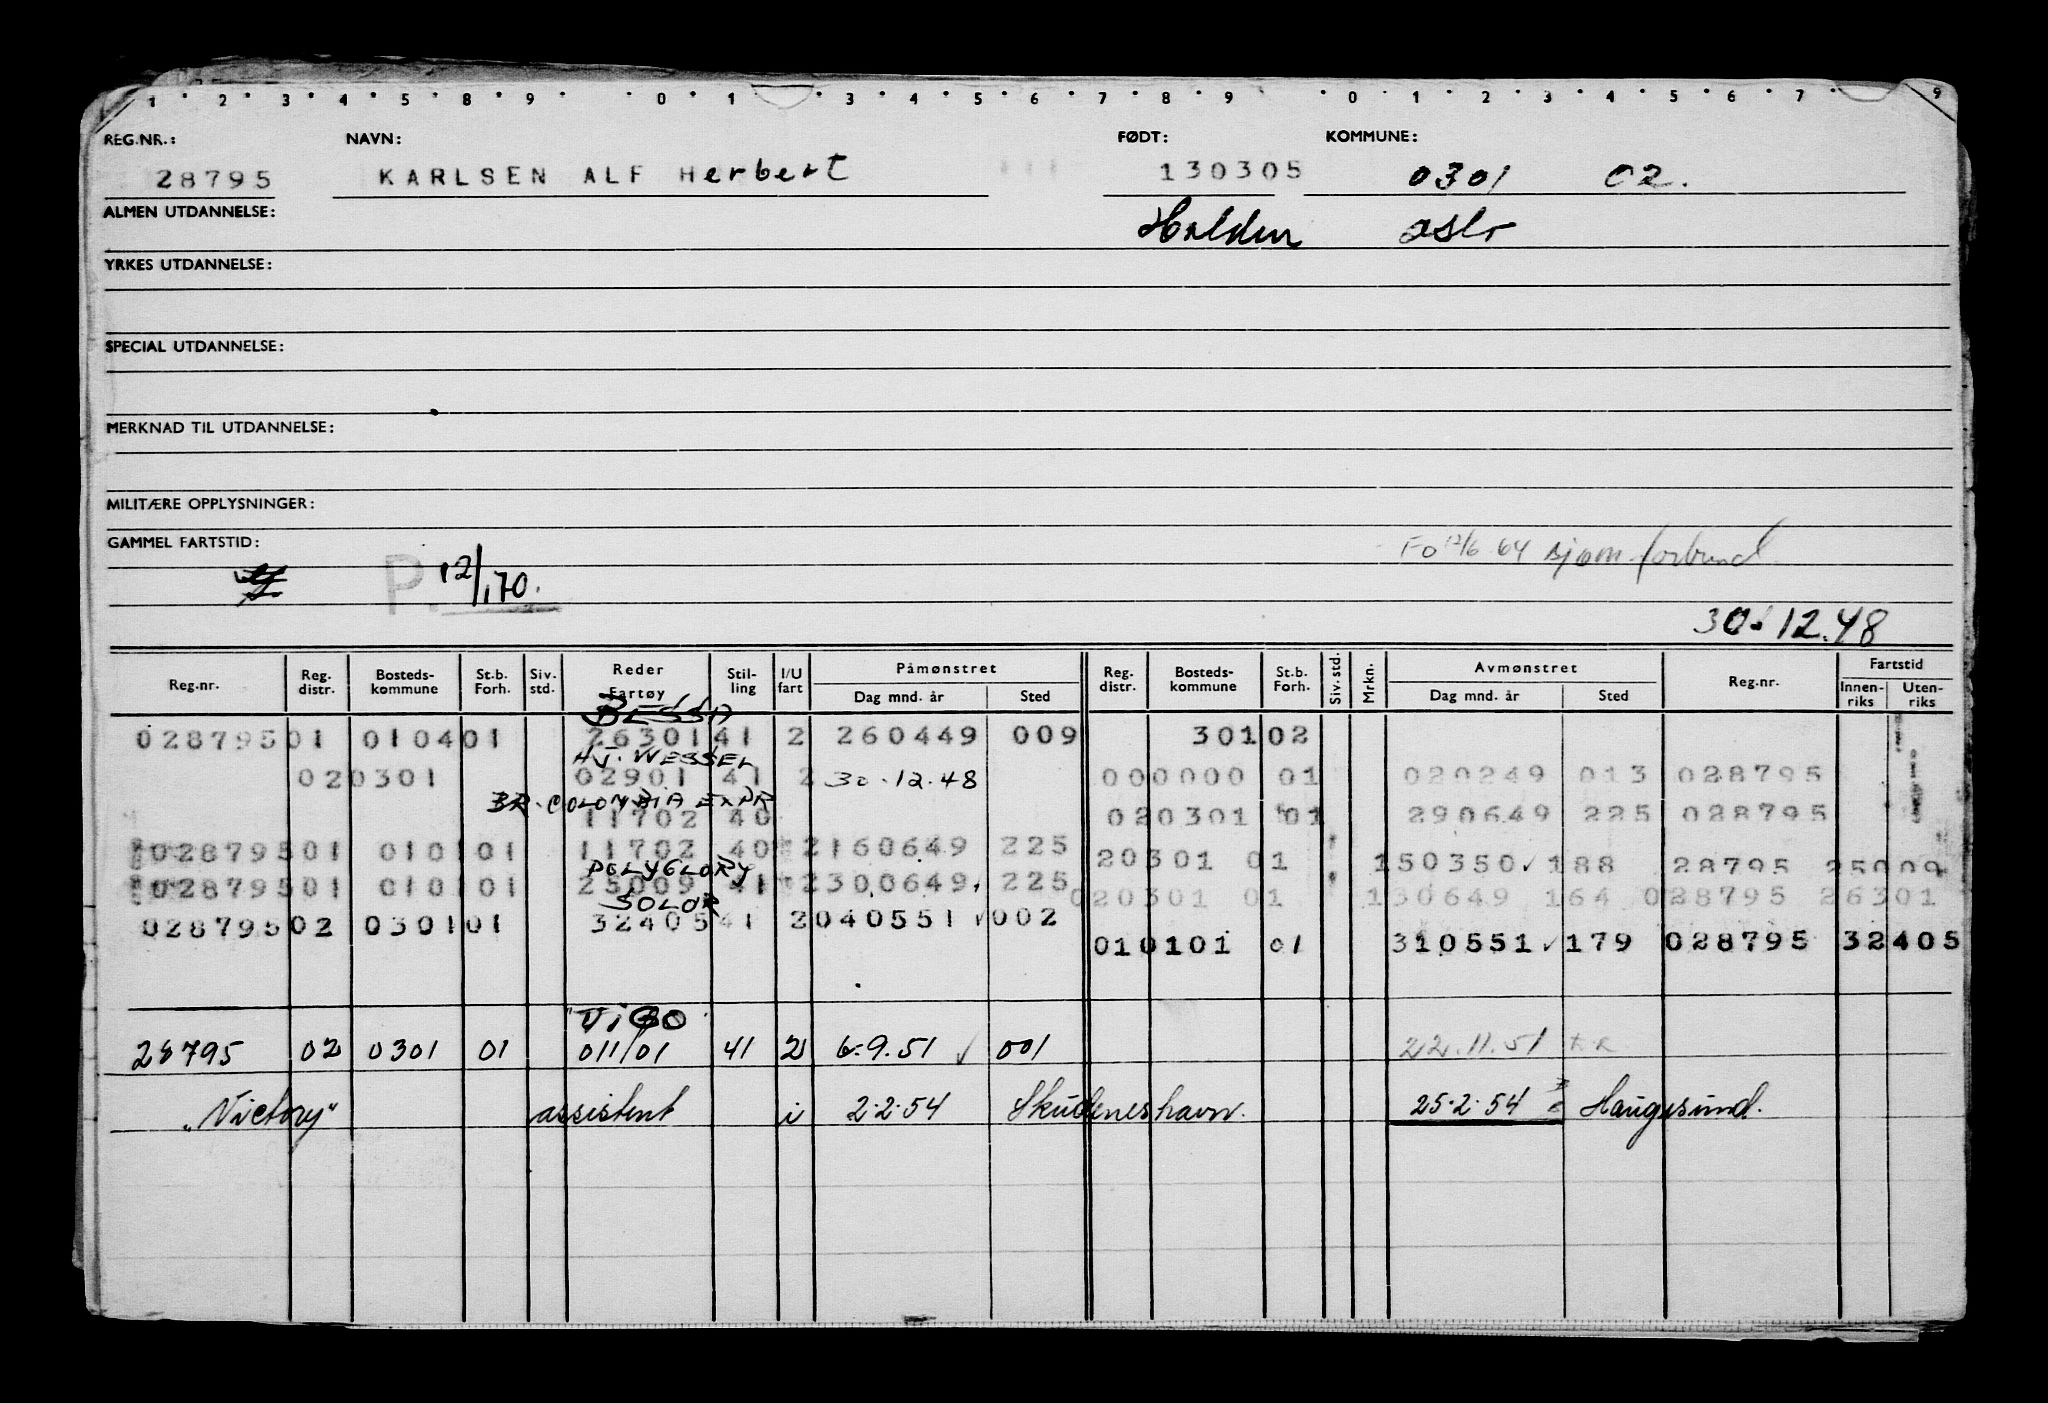 1 2 3 4 5 8 9 0 1 3 4 5 6 7 8 9 0 1 2 3 4 5 6 7 9
REG.NR.: NAVN: FØDT: KOMMUNE:
28795 KARLSEN ALF Herbert 130305 0301 02.
ALMEN UTDANNELSE: Halden Oslo
YRKES UTDANNELSE:
SPECIAL UTDANNELSE:
MERKNAD TIL UTDANNELSE:
MILITÆRE OPPLYSNINGER:
GAMMEL FARTSTID:
FO 12/6-64 Bjørn forbund
P. 12/1.70.
30.12.48
Reg.nr. Reg. distr. Bosteds-kommune St.b. Forh. Siv. std. Reder Fartøy Stil-ling I/U fart Påmønstret Dag mnd. år Sted Reg. distr. Bosteds-kommune St.b. Forh. Siv. std. Mrkn. Avmønstret Dag mnd. år Sted Reg.nr. Fartstid Innen-riks Uten-riks
BESSA
028795 01 0104 01 26301 41 2 260449 009 301 02
HJ. WESSEL
02 0301 02901 41 2 30.12.48 000000 01 020249 013 028795
BR. COLOMBIA EXPR
11702 40 020301 01 290649 225 028795
028795 01 0101 01 11702 40 2 160649 225 20301 01 150350 188 28795 25009
POLYGLORY
028795 01 0101 01 25009 41 2 300649 225 020301 01 130649 164 028795 26301
SOLOR
028795 02 0301 01 32405 41 2 040551 002 010101 01 310551 179 028795 32405
"VIGO"
28795 02 0301 01 011101 41 2 6.9.51 001 22.11.51
"Victory" assistent i 2.2.54 Skudeneshavn. 25.2.54 Haugesund.